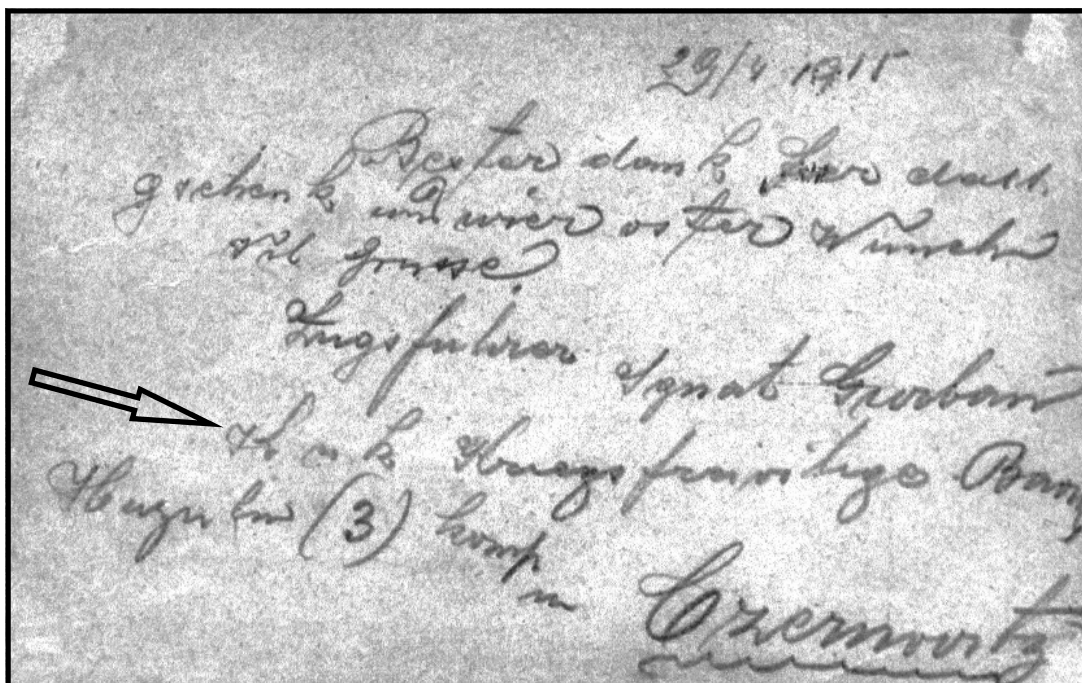 29/4 1915
Bester dank fver dass
gschenk und wier oster Wunsch
Vil Grusse
Zugsfuhrer Ignat Gorban
K u k Kriegsfreivilige
Huzulen (3) komp
in Czernovitz